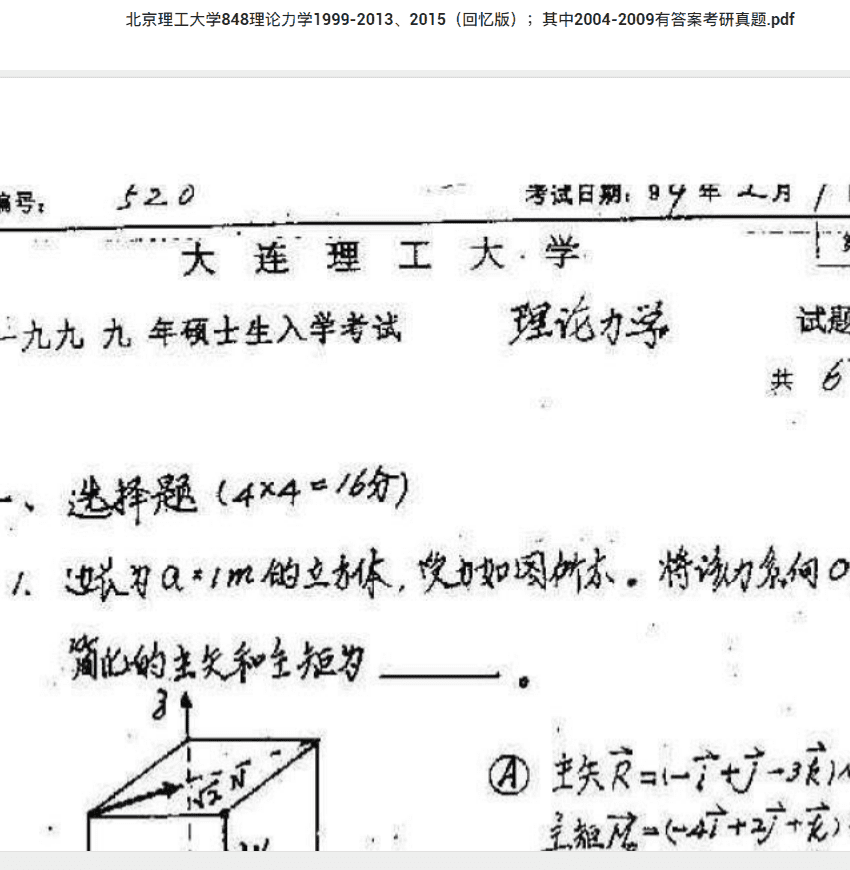 北京理工大学848理论力学1999-2013、2015（回忆版）；其中2004-2009有答案考研真题.pdf
编号： 520 考试日期：99年2月1
大连理工大学
一九九九年硕士生入学考试 理论力学 试题
共 6
一、选择题（4×4=16分）
1. 边长为a=1m的立方体，受力如图所示。将该力系向O
简化的主矢和主矩为______。
z
√2 N
Ⓐ 主矢R⃗=(-i⃗+j⃗-3k⃗)N
主矩M⃗₀=(-4i⃗+2j⃗+k⃗)